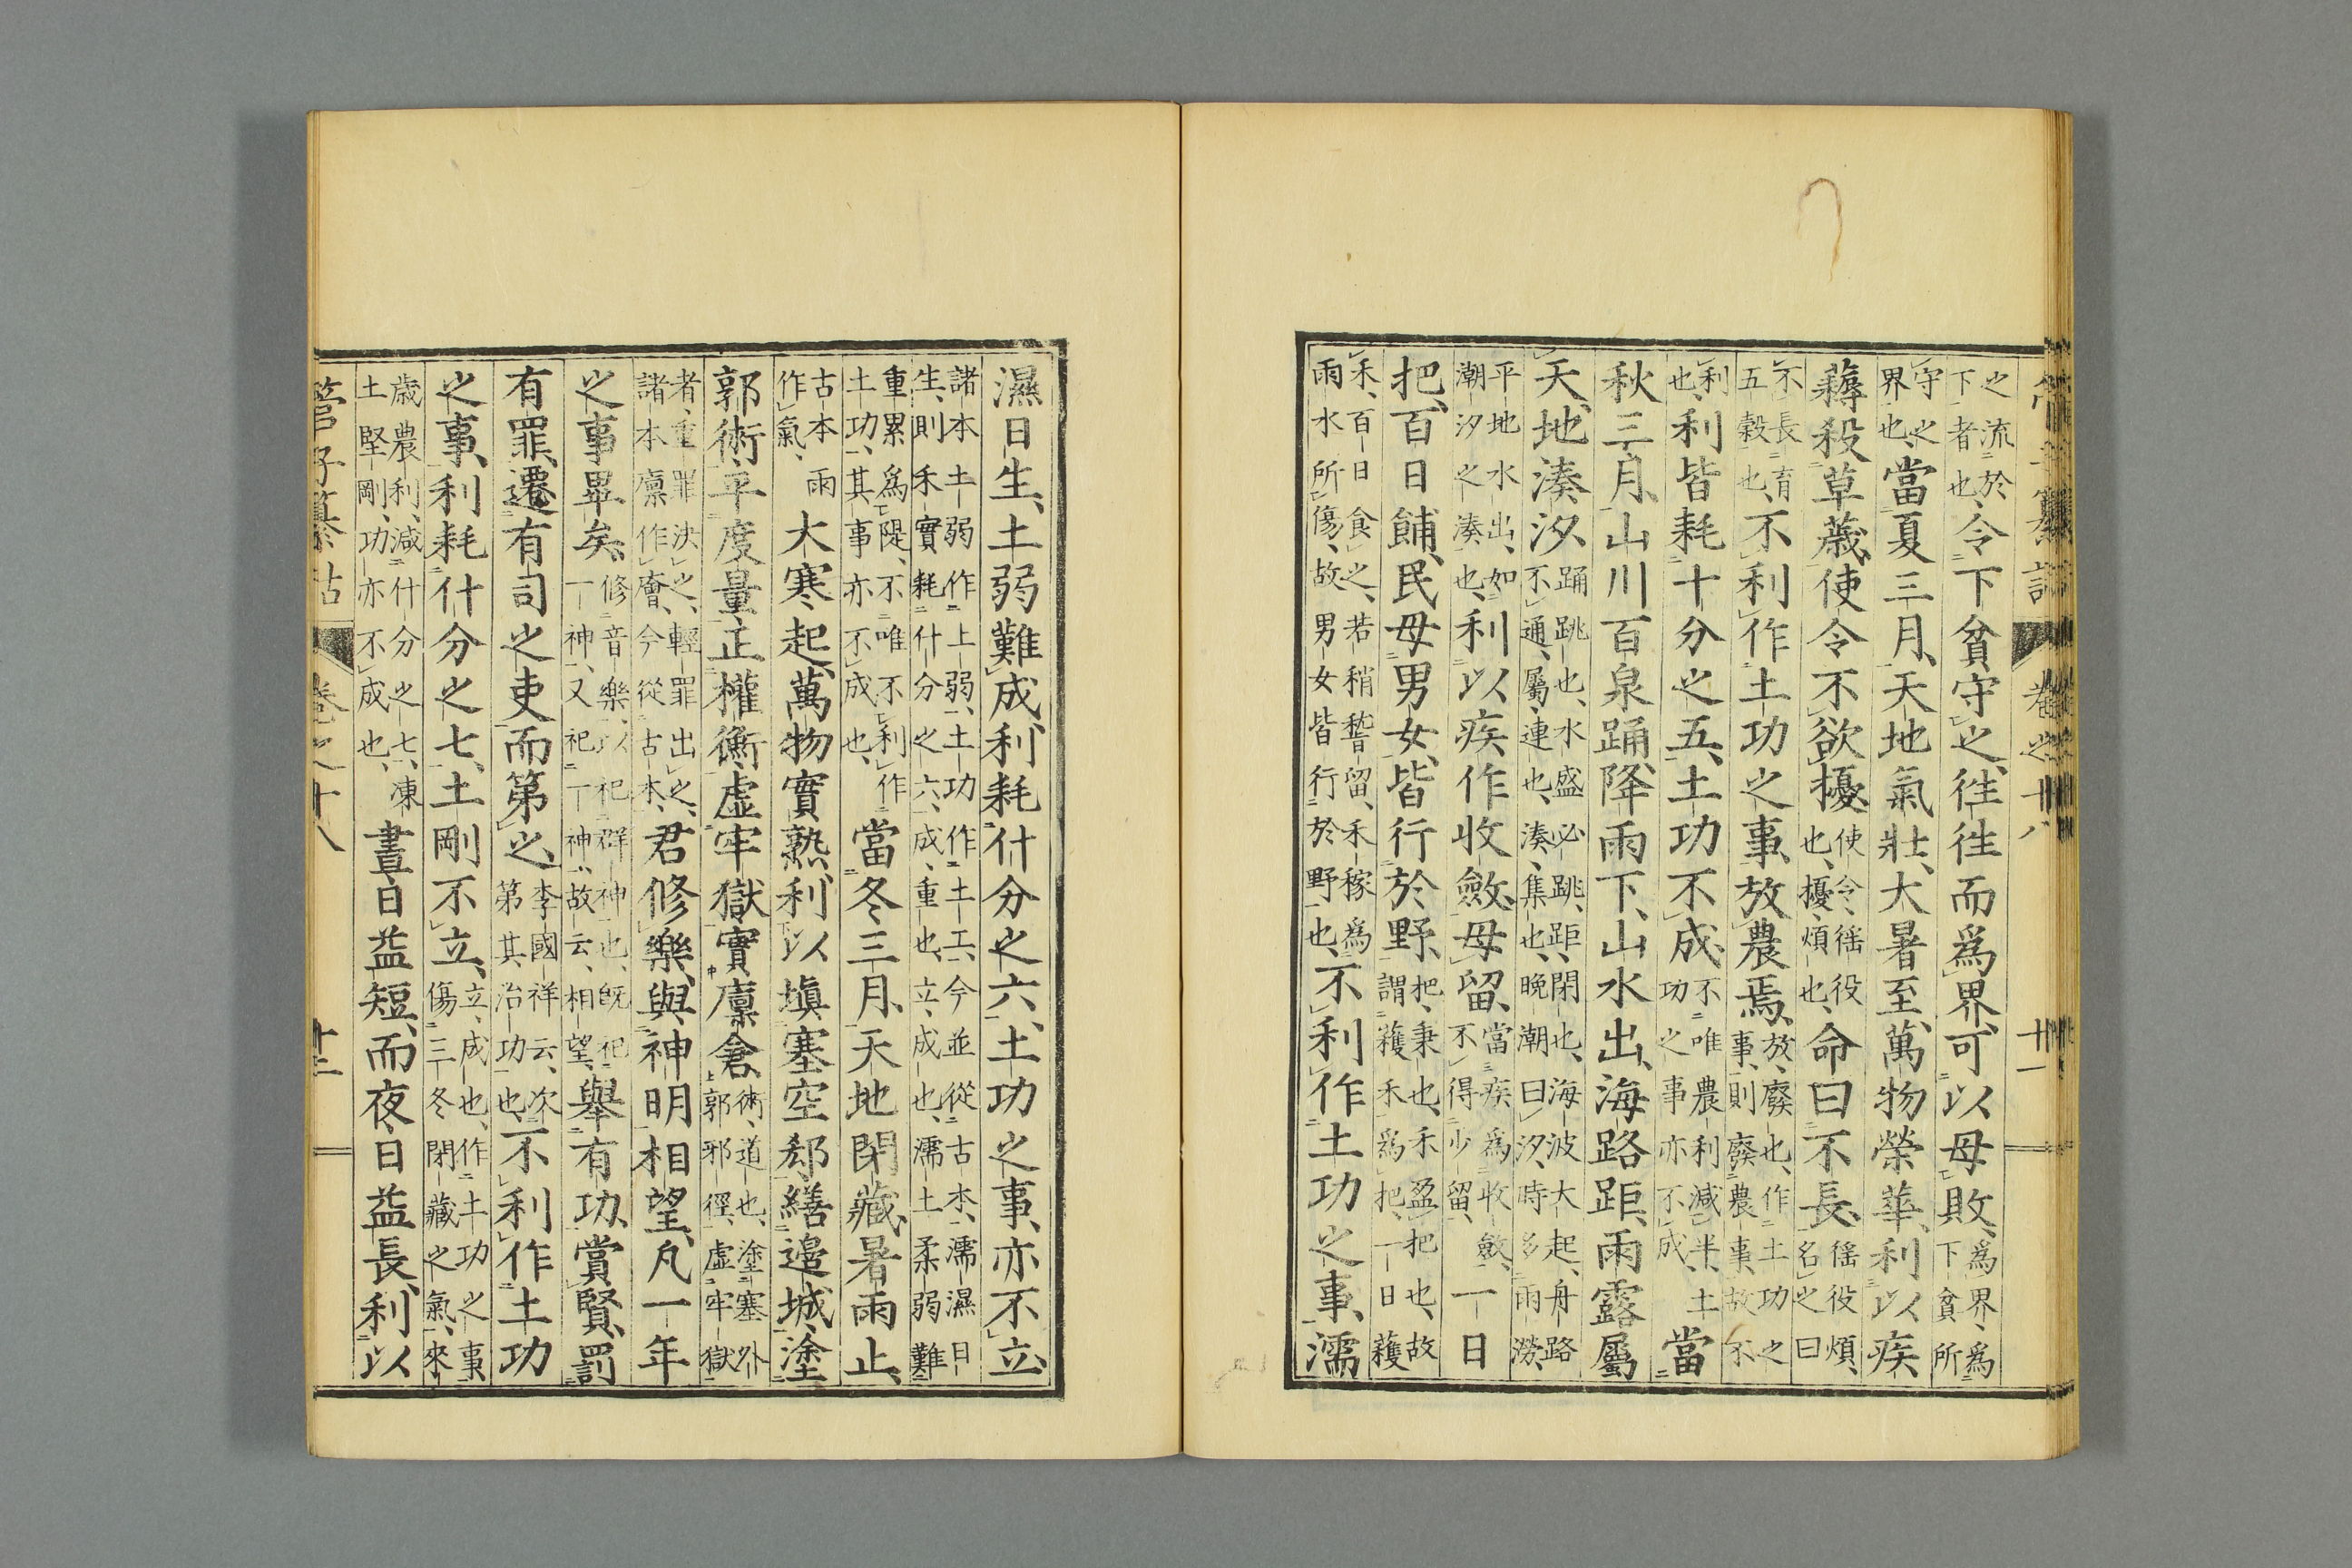 管子纂詁 卷之十八 十一
之流於下者也、令下貧守之、往往而爲界、可以毋敗、爲界、爲下貧所
守之界也、當夏三月、天地氣壯、大暑至、萬物榮華、利以疾
薅殺草薉、使令不欲擾、使令、徭役也、擾、煩也、命曰不長、徭役煩、名之曰
不長育五穀也、不利作土功之事、放農焉、放、廢也、作土功之事、則廢農事、故不
利也、利皆耗十分之五、土功不成、不唯農利減半、土功之事亦不成 當
秋三月、山川百泉踊、降雨下、山水出、海路距、雨露屬
天地湊汐、踊跳也、水盛必跳、距、閉也、海波大起、舟路不通、屬、連也、湊、集也、晩潮曰汐、時多雨澇、
平地水出、如潮汐之湊也、利以疾作、收斂毋留、當疾爲收斂、不得少留、一日
把、百日餔、民毋男女、皆行於野、把、秉也、禾盈把也、故謂穫禾爲把、一日穫
禾、百日食之、若稍稽留、禾稼爲雨水所傷、故男女皆行於野也、不利作土功之事、濡
濕日生、土弱難成、利耗什分之六、土功之事、亦不立、
諸本土弱作上弱、土功作土工、今並從古本、濡濕日生、則禾實耗什分之六、成、重也、立、成也、濡土柔弱難
重累爲隄、不唯不利作土功、其事亦不成也、當冬三月、天地閉藏、暑雨止、
古本雨作氣、大寒起、萬物實熟、利以塡塞空郄、繕邊城、塗
郭術、平度量、正權衡、虛牢獄、實廩倉、術、道也、塗塞外郭邪徑、虛牢獄
者、重罪決之、輕罪出之、諸本廩作廥、今從古本、君修樂、與神明相望、凡一年
之事畢矣、修音樂、以祀群神也、旣祀一神、又祀一神、故云、相望、擧有功、賞賢、罰
有罪、遷有司之吏而第之、李國祥云、次第其治功也、不利作土功
之事、利耗什分之七、土剛不立、立、成也、作土功之事、傷三冬閉藏之氣、來
歲農利、減什分之七、凍土堅剛、功亦不成也、晝日益短、而夜日益長、利以
管子纂詁 卷之十八 十二